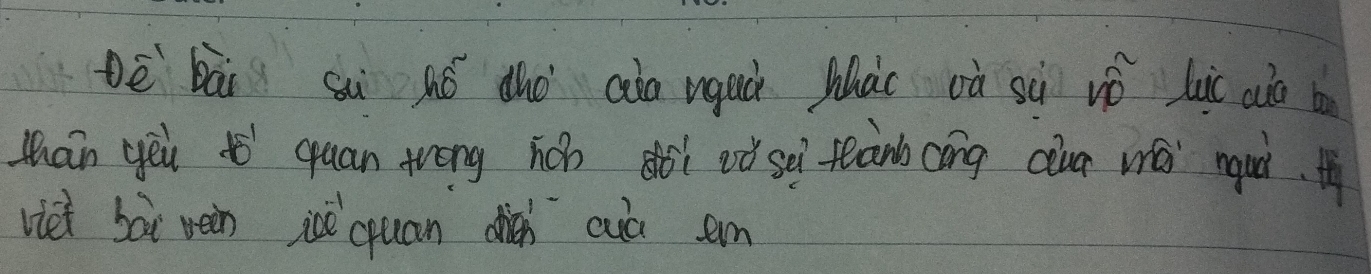 Đề bài sự hỗ chợ của người khác và sự nỗ lực của bản
thân yếu tố quan trọng hơn đối với sự thành công của mỗi người. Hãy
viết bài văn về quan điểm của em